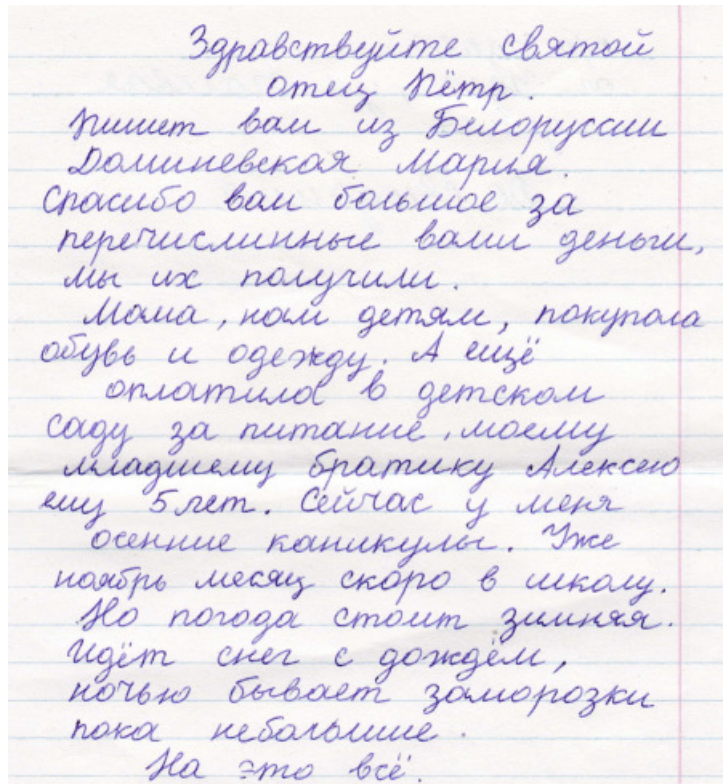 Здравствуйте святой
отец Пётр.
Пишет вам из Белоруссии
Долиневская Мария.
Спасибо вам большое за
перечислинные вами деньги,
мы их получили.
Мама, нам детям, покупала
обувь и одежду. А ещё
оплатила в детском
саду за питание, моему
младшему братику Алексею
ему 5 лет. Сейчас у меня
осенние каникулы. Уже
ноябрь месяц скоро в школу.
Но погода стоит зимняя.
Идёт снег с дождём,
ночью бывает заморозки
пока небольшие.
На это всё.